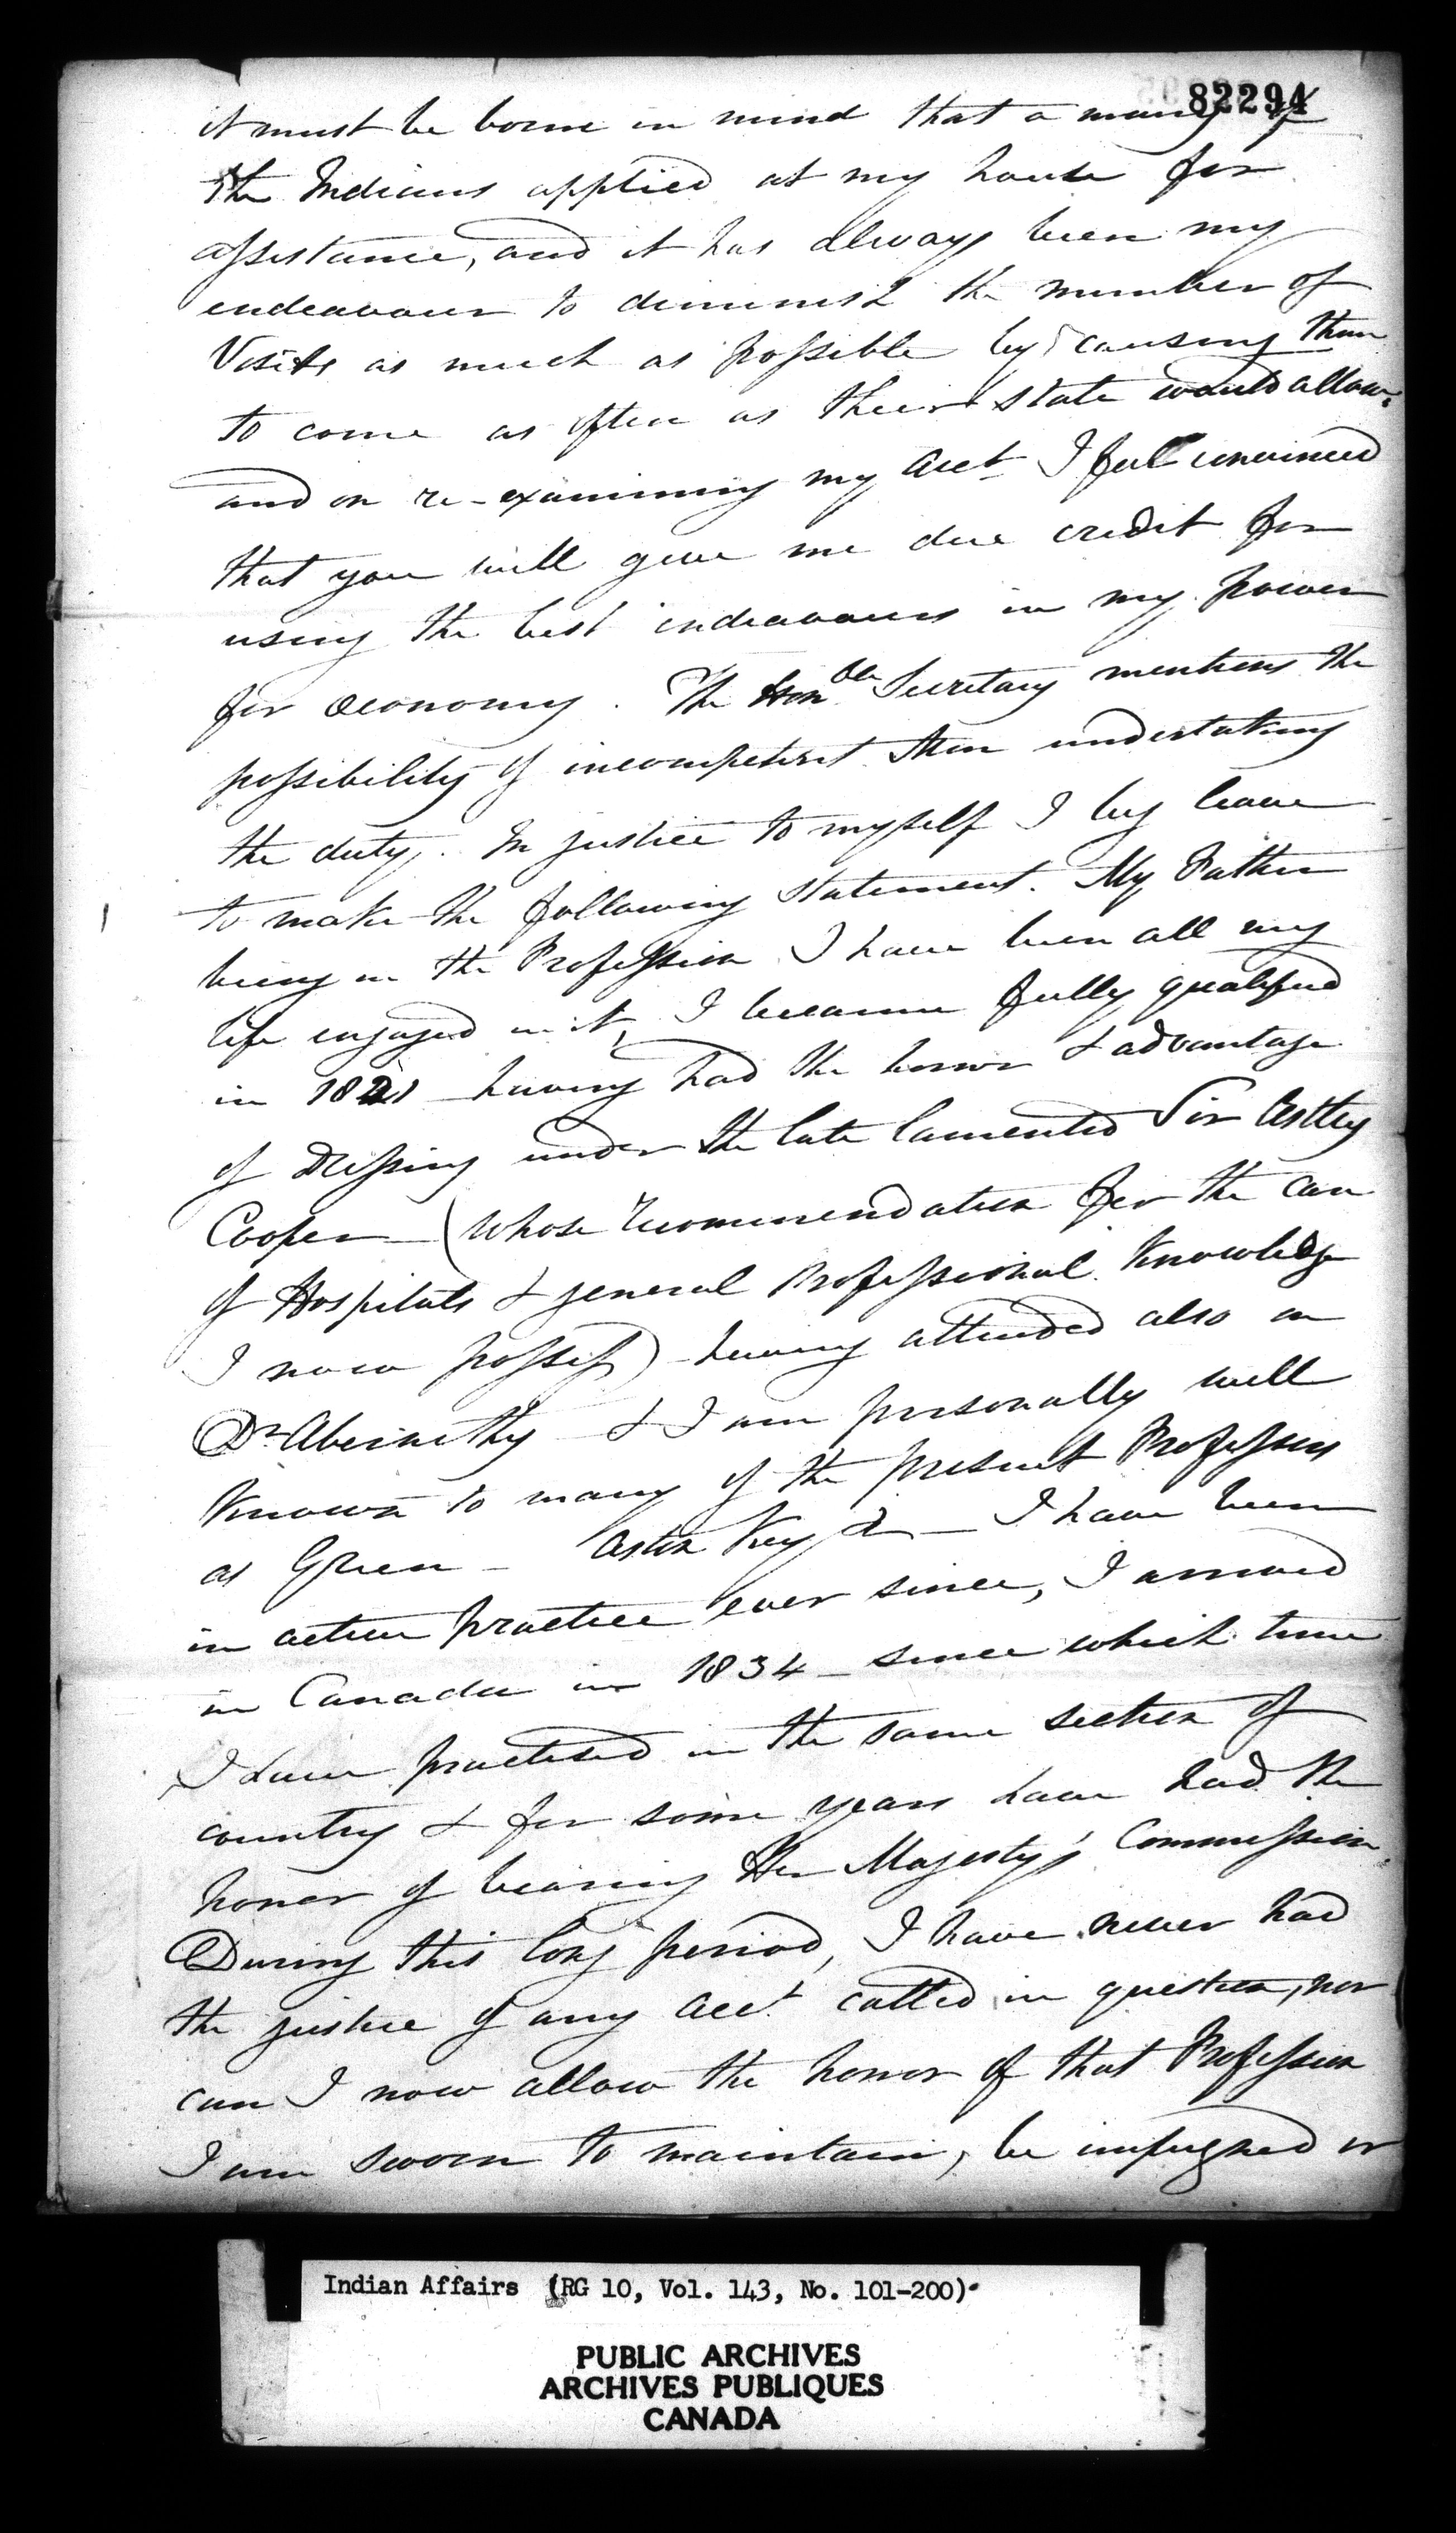 82294
it must be borne in mind that a many of
the Indians applied at my house for
assistance, and it has always been my
endeavour to diminish the number of
Visits as much as possible by causing them
to come as often as their state would allow.
and on re-examining my acct I feel convinced
that you will give me due credit for
using the best endeavours in my power
for oeconomy. The Honble Secretary mentions the
possibility of incompetent Men undertaking
the duty. In justice to myself I beg leave
to make the following statement. My Father
being in the Profession I have been all my
life engaged in it, I became fully qualified
in 1821 having had the honor & advantage
of Dressing under the late lamented Sir Astley
Cooper – (whose recommendation for the care
of Hospitals & general Professional Knowledge
I now possess) having attended also on
Dr Abernethy & I am personally well
Known to many of the present Professors
as Green – Aston Key & – I have been
in active practice ever since, I arrived
in Canada in 1834 – since which time
I have practised in the same section of
country & for some years have had the
honor of bearing Her Majesty's Commission.
During this long period, I have never had
the justice of any acct called in question, nor
can I now allow the honor of that Profession
I am sworn to maintain, be impugned or
Indian Affairs (RG 10, Vol. 143, No. 101-200)
PUBLIC ARCHIVES
ARCHIVES PUBLIQUES
CANADA